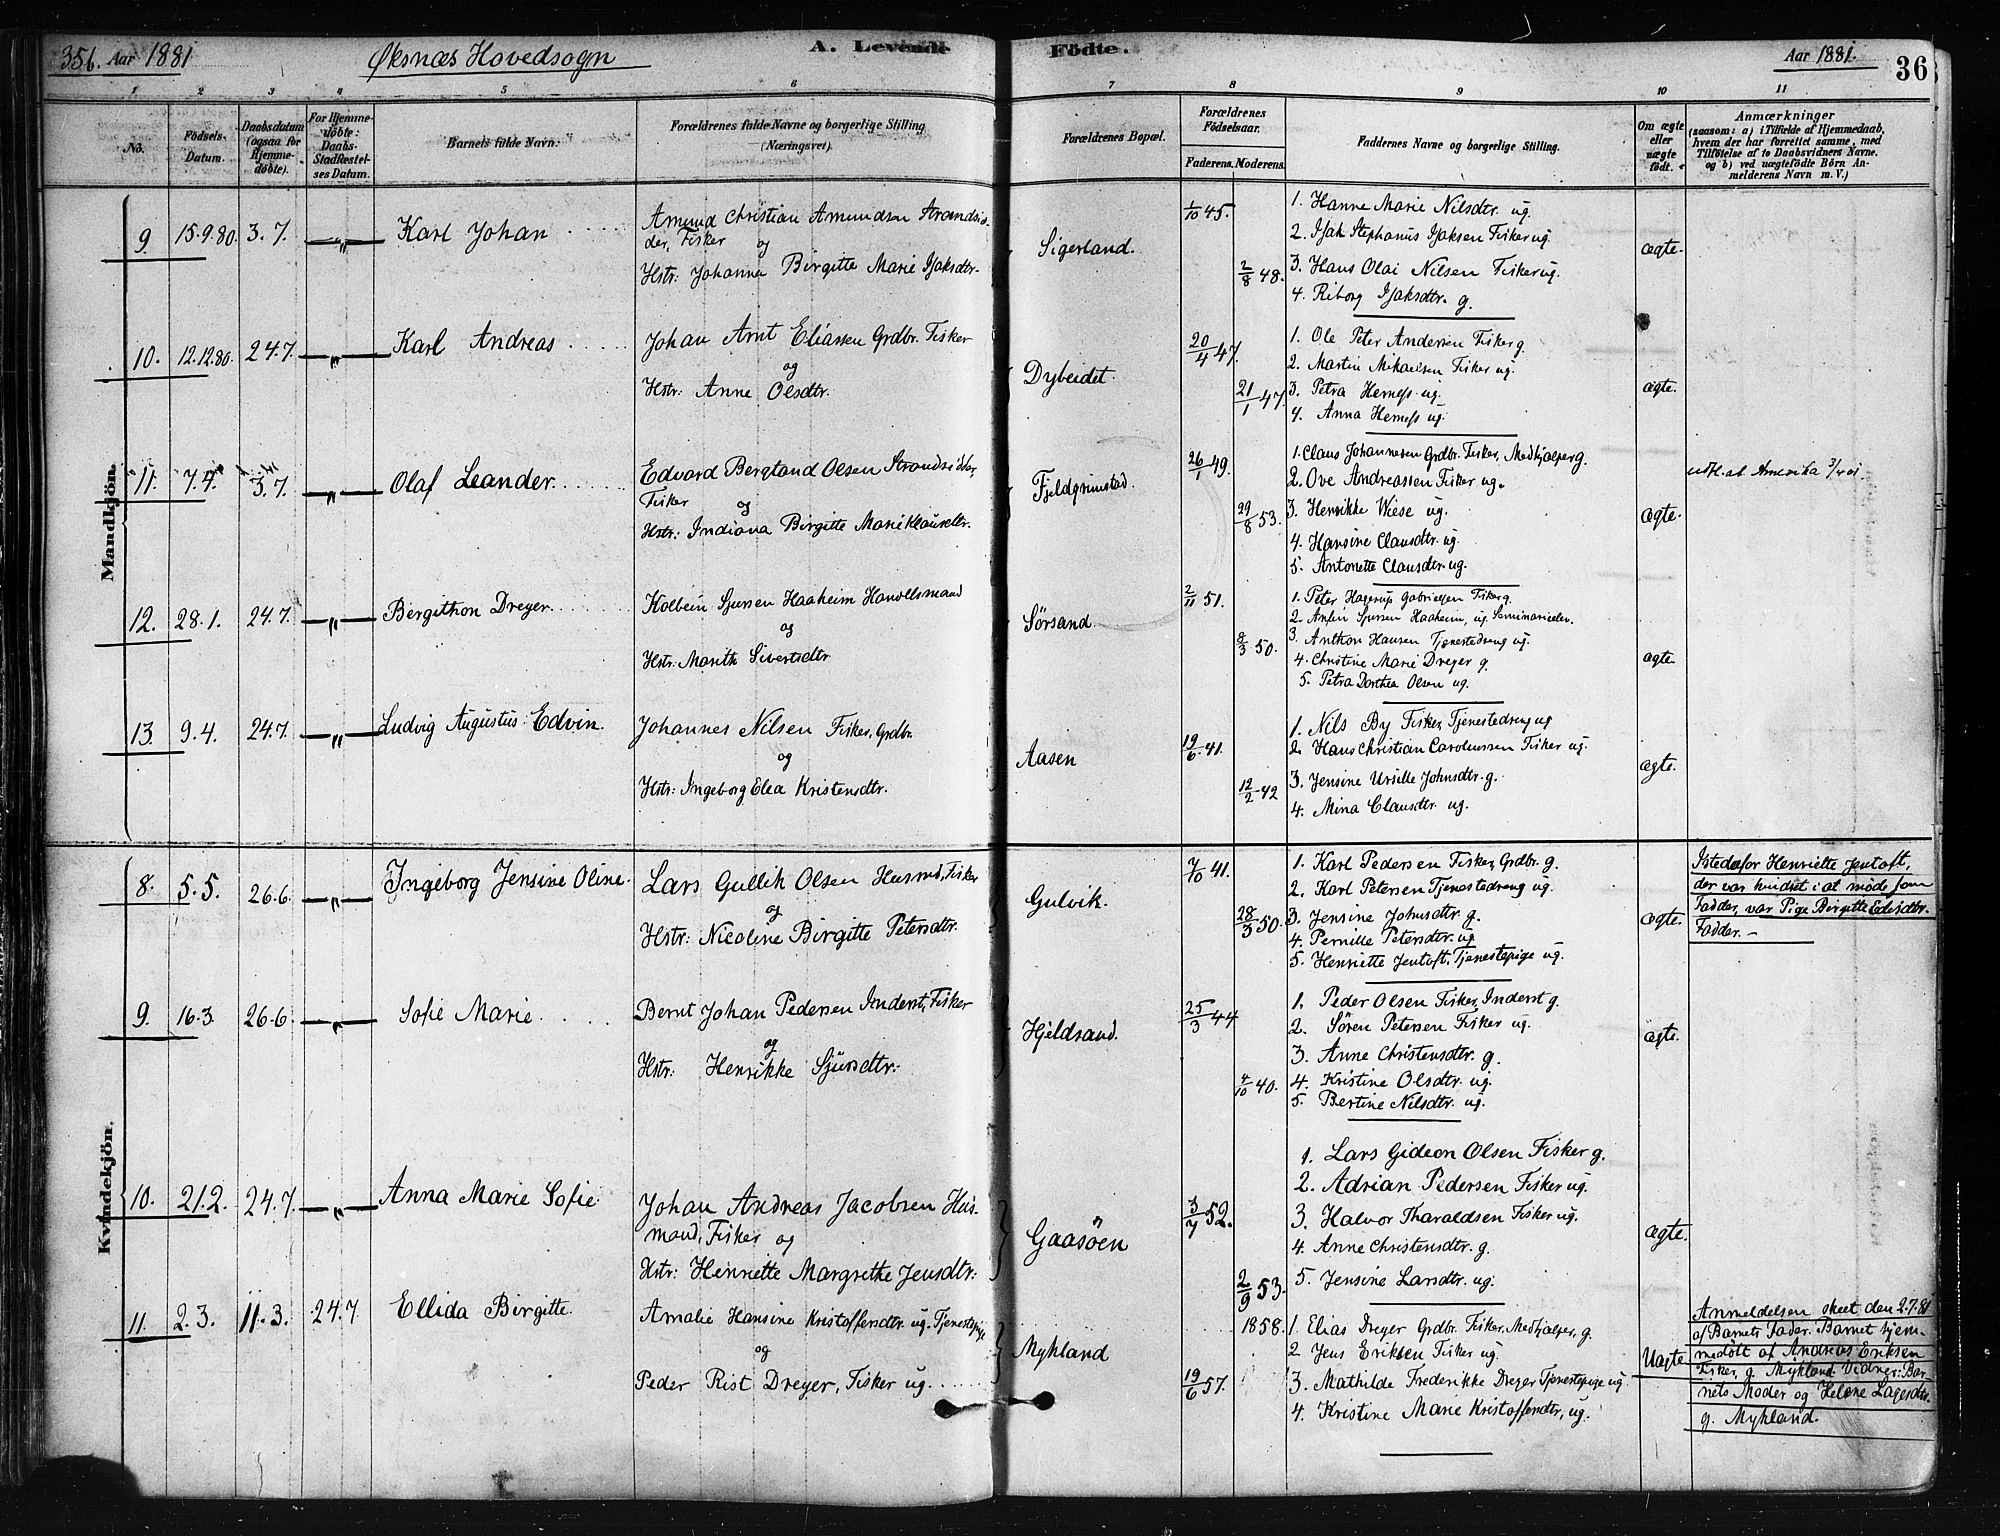 35b. Aar 1881 Øksnæs Hovedsogn A. Levende Födte. Aar 1881. 36
1 2 3 4 5 6 7 8 9 10 11
No. Födsels-Datum. Daabsdatum (ogsaa for Hjemme-döbte). For Hjemme-döbte: Daabs-Stadfæstel-ses Datum. Barnets fulde Navn. Forældrenes fulde Navne og borgerlige Stilling (Næringsvei). Forældrenes Bopæl. Forældrenes Födselsaar. Faderens. Moderens. Faddernes Navne og borgerlige Stilling. Om ægte eller uægte födt. Anmærkninger
(saasom: a) i Tilfælde af Hjemmedaab,
hvem der har forrettet samme, med
Tilföielse af to Daabsvidners Navne,
og b) ved uægtefödte Börn An-
melderens Navn m. V.)
Mandkjön.
9. 15.9.80. 3.7. —„— Karl Johan
Amund Christian Amundsen Strandsid-
der, Fisker
og
Hstr: Johanna Birgitte Marie Isaksdtr.
Sigerland.
1/10 45.
2/8 48.
1. Hanne Marie Nilsdtr. ug.
2. Isak Stephanus Isaksen Fisker ug.
3. Hans Olai Nilsen Fisker ug.
4. Riborg Isaksdtr. g.
ægte.
10. 12.12.80. 24.7. —„— Karl Andreas
Johan Arnt Eliassen Grdbr. Fisker
og
Hstr: Anne Olsdtr.
Dybeidet.
20/4 47.
21/1 47.
1. Ole Peter Andersen Fisker g.
2. Martin Mikaelsen Fisker ug.
3. Petra Hemess ug.
4. Anna Hemess ug.
ægte.
11. 7.4. 3.7. —„— Olaf Leander
Edvard Bergtand Olsen Strandsidder,
Fisker
og
Hstr: Indiana Birgitte Marie Klausdtr.
Fjeldgrimstad.
26/1 49.
29/8 53.
1. Claus Johannesen Grdbr. Fisker, Medhjælper g.
2. Ove Andreassen Fisker ug.
3. Henrikke Wiese ug.
4. Hansine Clausdtr. ug.
5. Antonette Clausdtr. ug.
ægte.
udfl. at Amerika 3/4 01.
12. 28.1. 24.7. —„— Bergithon Dreyer
Kolbein Sjursen Haaheim Handelsmand
og
Hstr: Marith Sivertsdtr
Sörsand.
2/11 51.
8/3 50.
1. Peter Hagerup Gabrielsen Fisker g.
2. Anfin Sjursen Haaheim, ug. Seminarieelev.
3. Anthon Hansen Tjenestedreng ug.
4. Christine Marie Dreyer g.
5. Petra Dorthea Olsen ug.
ægte.
13. 9.4. 24.7. —„— Ludvig Augustus Edvin.
Johannes Nilsen Fisker, Grdbr.
og
Hstr: Ingeborg Elea Kristensdtr.
Aasen
19/6 41.
12/2 42
1. Nils By Fisker, Tjenestedreng ug
2. Hans Christian Caroliussen Fisker ug.
3. Jensine Ursille Johnsdtr. g.
4. Mina Clausdtr. ug.
ægte.
Kvindekjön.
8. 5.5. 26.6. —„— Ingeborg Jensine Oline.
Lars Gullik Olsen Husmd, Fisker
og
Hstr: Nicoline Birgitte Petersdtr.
Gulvik.
7/10 41.
28/3 50.
1. Karl Pedersen Fisker, Grdbr. g.
2. Karl Petersen Tjenestedreng ug.
3. Jensine Johnsdtr. g.
4. Pernille Petersdtr. ug
5. Henriette Jentoft, Tjenestepige ug.
ægte.
Istedefor Henriette Jentoft,
der var hindret i at möde som
Fadder, var Pige Birgitte Edisdtr.
Fadder.—
9. 16.3. 26.6. —„— Sofie Marie
Bernt Johan Pedersen Inderst, Fisker
og
Hstr: Henrikke Sjursdtr.
Hjeldsand.
25/3 44
4/10 40.
1. Peder Olsen Fisker, Inderst g.
2. Sören Petersen Fisker ug.
3. Anne Christensdtr. g.
4. Kristine Olsdtr. ug.
5. Bertine Nilsdtr. ug.
ægte.
10. 21.2. 24.7. —„— Anna Marie Sofie
Johan Andreas Jacobsen Hus-
mand, Fisker og
Hstr: Henriette Margrethe Jensdtr:
Gaasöen
3/7 52.
2/9 53.
1. Lars Gideon Olsen Fisker g.
2. Adrian Pedersen Fisker ug.
3. Halvor Tharaldsen Fisker ug.
4. Anne Christensdtr. g.
5. Jensine Larsdtr. ug.
ægte.
11. 2.3. 11.3. 24.7. Ellida Birgitte.
Amalie Hansine Kristoffersdtr ug. Tjenestepige
og
Peder Rist Dreyer, Fisker ug.
Myhland
1858.
19/6 57.
1. Elias Dreyer Grdbr. Fisker, Medhjælper, g.
2. Jens Eriksen Fisker ug.
3. Mathilde Frederikke Dreyer Tjenestepige ug.
4. Kristine Marie Kristoffersdtr, ug.
Uægte
Anmeldelsen skeet den 2.7.81
af Barnets Fader. Barnet hjem-
medöbt af Andreas Eriksen
Fisker, g. Myhland Vidner: Bar-
nets Moder og Helene Lagesdtr.
g. Myhland.